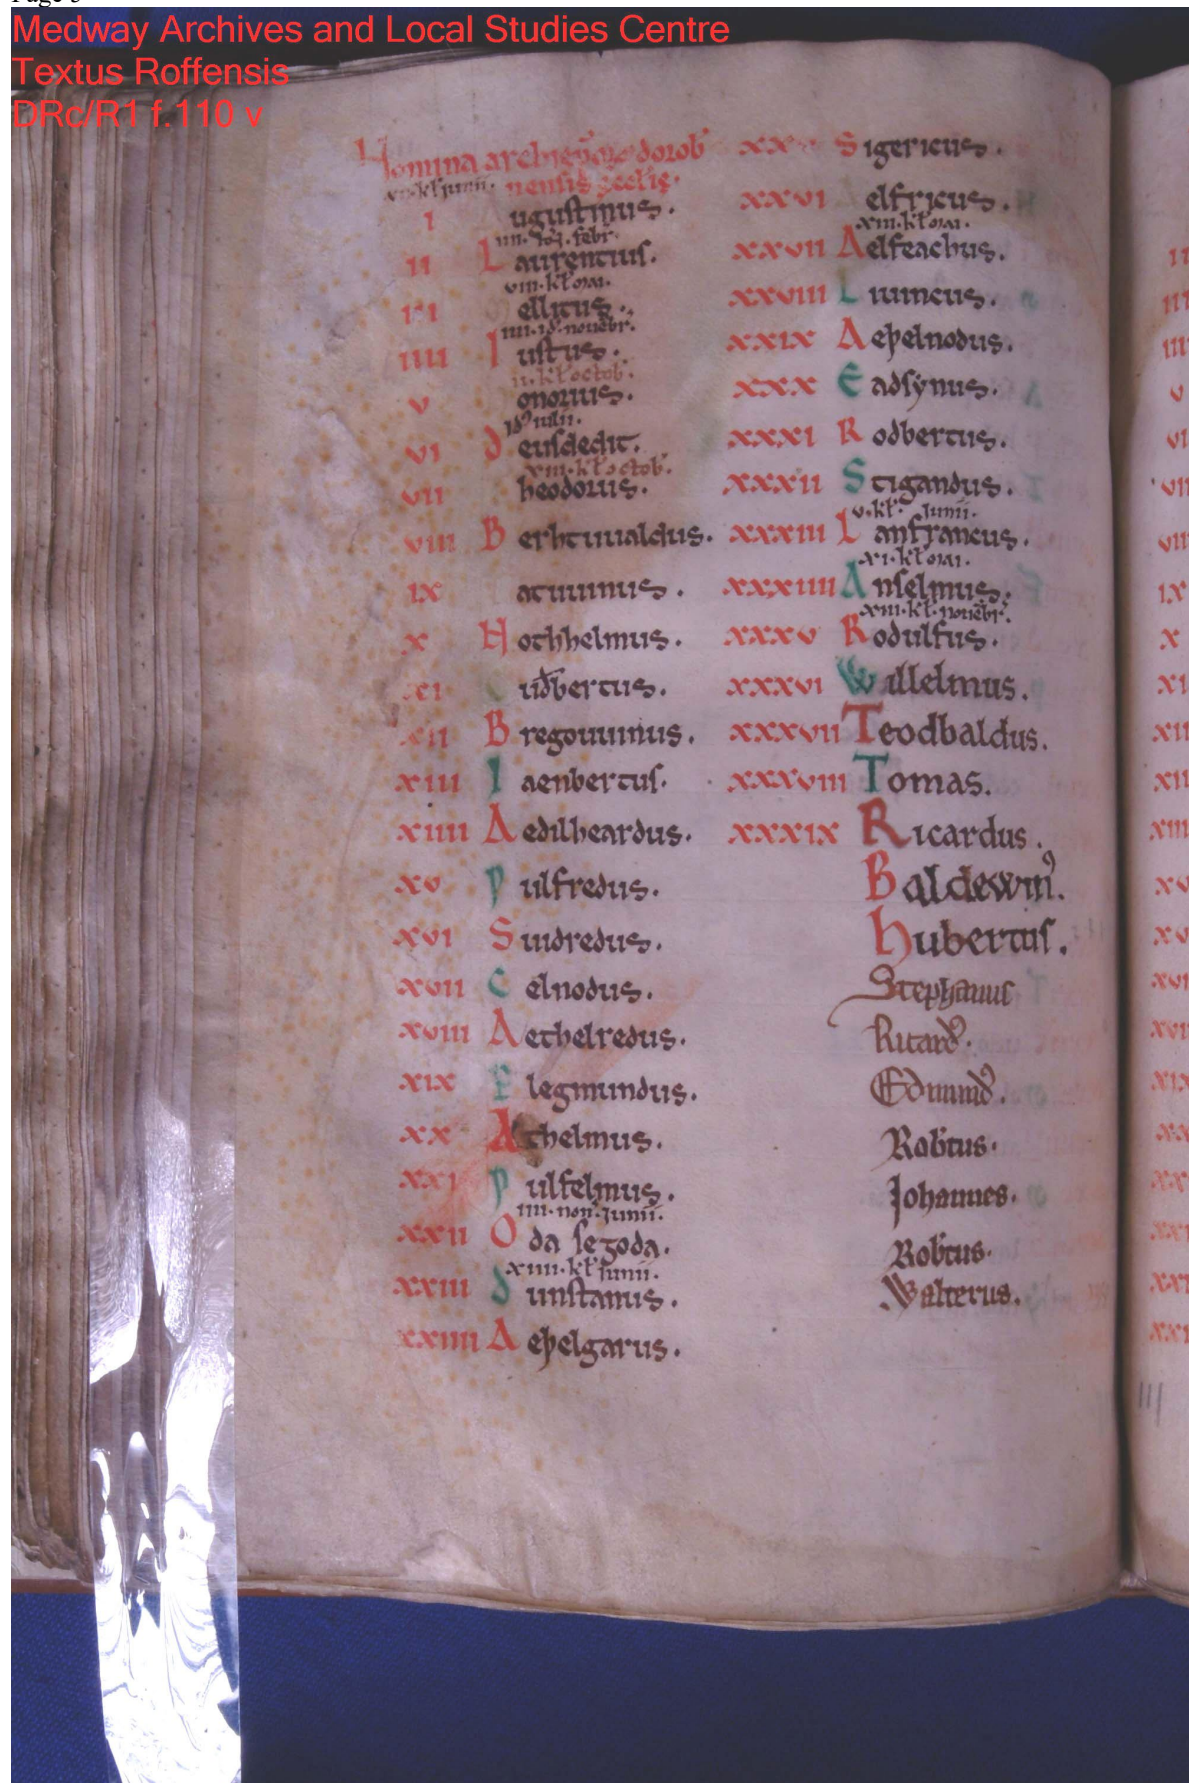 Medway Archives and Local Studies Centre
Textus Roffensis
DRc/R1 f.110 v
Nomina archiep̄o℞ dorob
nensis ęcclię.
kł junii.
I Augustinus.
IIII. NON. febr.
II Laurentius.
VIII. kł mai.
III ellitus.
IIII. id. novēbr.
IIII Iustus.
II. kł octob.
V onorius.
id iulii.
VI Deusdedit.
XIII. kł octob.
VII heodorus.
VIII Berhtuualdus.
IX atuuinus.
X Hothhelmus.
XI Cuðbertus.
XII Bregouuinus.
XIII Iaenbertus.
XIIII Aedilheardus.
XV Ƿulfredus.
XVI Suidredus.
XVII Celnodus.
XVIII Aethelredus.
XIX Plegmundus.
XX Athelmus.
XXI Ƿulfelmus.
IIII. non. junii.
XXII Oda se goda.
XIIII. kł junii.
XXIII Dunstanus.
XXIIII Aeþelgarus.
XXV Sigericus.
XXVI Aelfricus.
XIII. kł mai.
XXVII Aelfeachus.
XXVIII Liuincus.
XXIX Aeþelnodus.
XXX Eadsynus.
XXXI Rodbertus.
XXXII Stigandus.
V. kł. Iunii.
XXXIII Lanfrancus.
XI. kł mai.
XXXIIII Anselmus.
XIII. kł. novēbr.
XXXV Rodulfus.
XXXVI Willelmus.
XXXVII Teodbaldus.
XXXVIII Tomas.
XXXIX Ricardus.
Baldewinꝰ.
Hubertus.
Stephanus
Ricardꝰ.
Edmundꝰ.
Rob̄tus.
Johannes.
Rob̄tus.
Walterus.